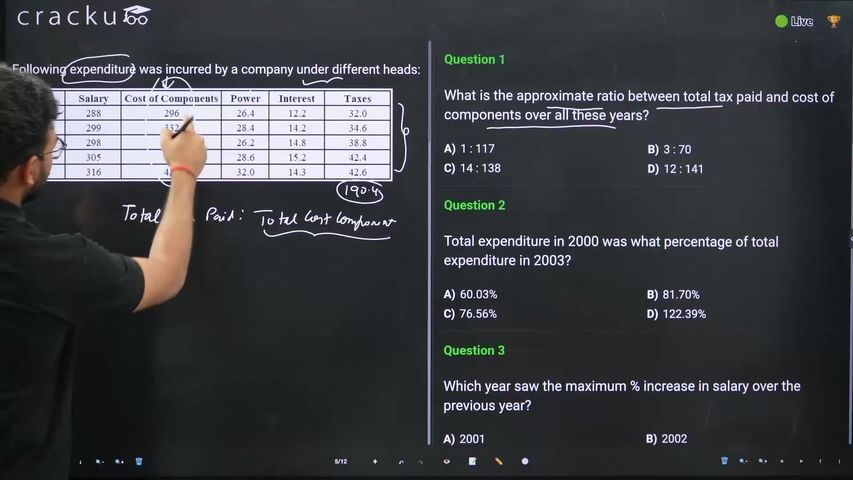 cracku
Live
Following expenditure was incurred by a company under different heads:
Salary Cost of Components Power Interest Taxes
288 296 26.4 12.2 32.0
299 28.4 14.2 34.6
298 26.2 14.8 38.8
305 28.6 15.2 42.4
316 32.0 14.3 42.6
190.4
Total Paid: Total Cost Component
Question 1
What is the approximate ratio between total tax paid and cost of
components over all these years?
A) 1 : 117 B) 3 : 70
C) 14 : 138 D) 12 : 141
Question 2
Total expenditure in 2000 was what percentage of total
expenditure in 2003?
A) 60.03% B) 81.70%
C) 76.56% D) 122.39%
Question 3
Which year saw the maximum % increase in salary over the
previous year?
A) 2001 B) 2002
5/12